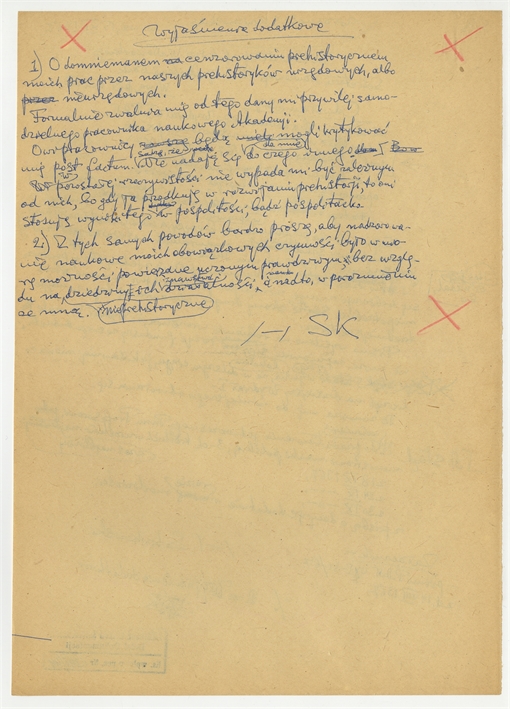 Wyjaśnienia dodatkowe
1) O domniemanem cenzorowaniu prehistorycznem
moich prac przez naszych prehistoryków urzędowych, albo
przez nieurzędowych.
Formalnie zwalnia mię od tego dany mi przywilej samo-
dzielnego pracownika naukowego Akademji.
Owi będą mogli krytykować
mię post factum. Nie nadają się do czego innego
W pozostałej rzeczywistości nie wypada mi być zależnym
od nich, bo gdy ja przoduję w rozwijaniu prehistorji, to oni
stosują wyniki tego w pospolitości, bądź pospolitacko.
2) Z tych samych powodów bardzo proszę, aby nadzorowa-
nie naukowe moich obowiązkowych czynności było w mia-
rę możności powierzone uczonym prawdziwym, bez wzglę-
du na dziedziny ich działalności, a nadto, w porozumieniu
ze mną. nieprehistoryczne
SK